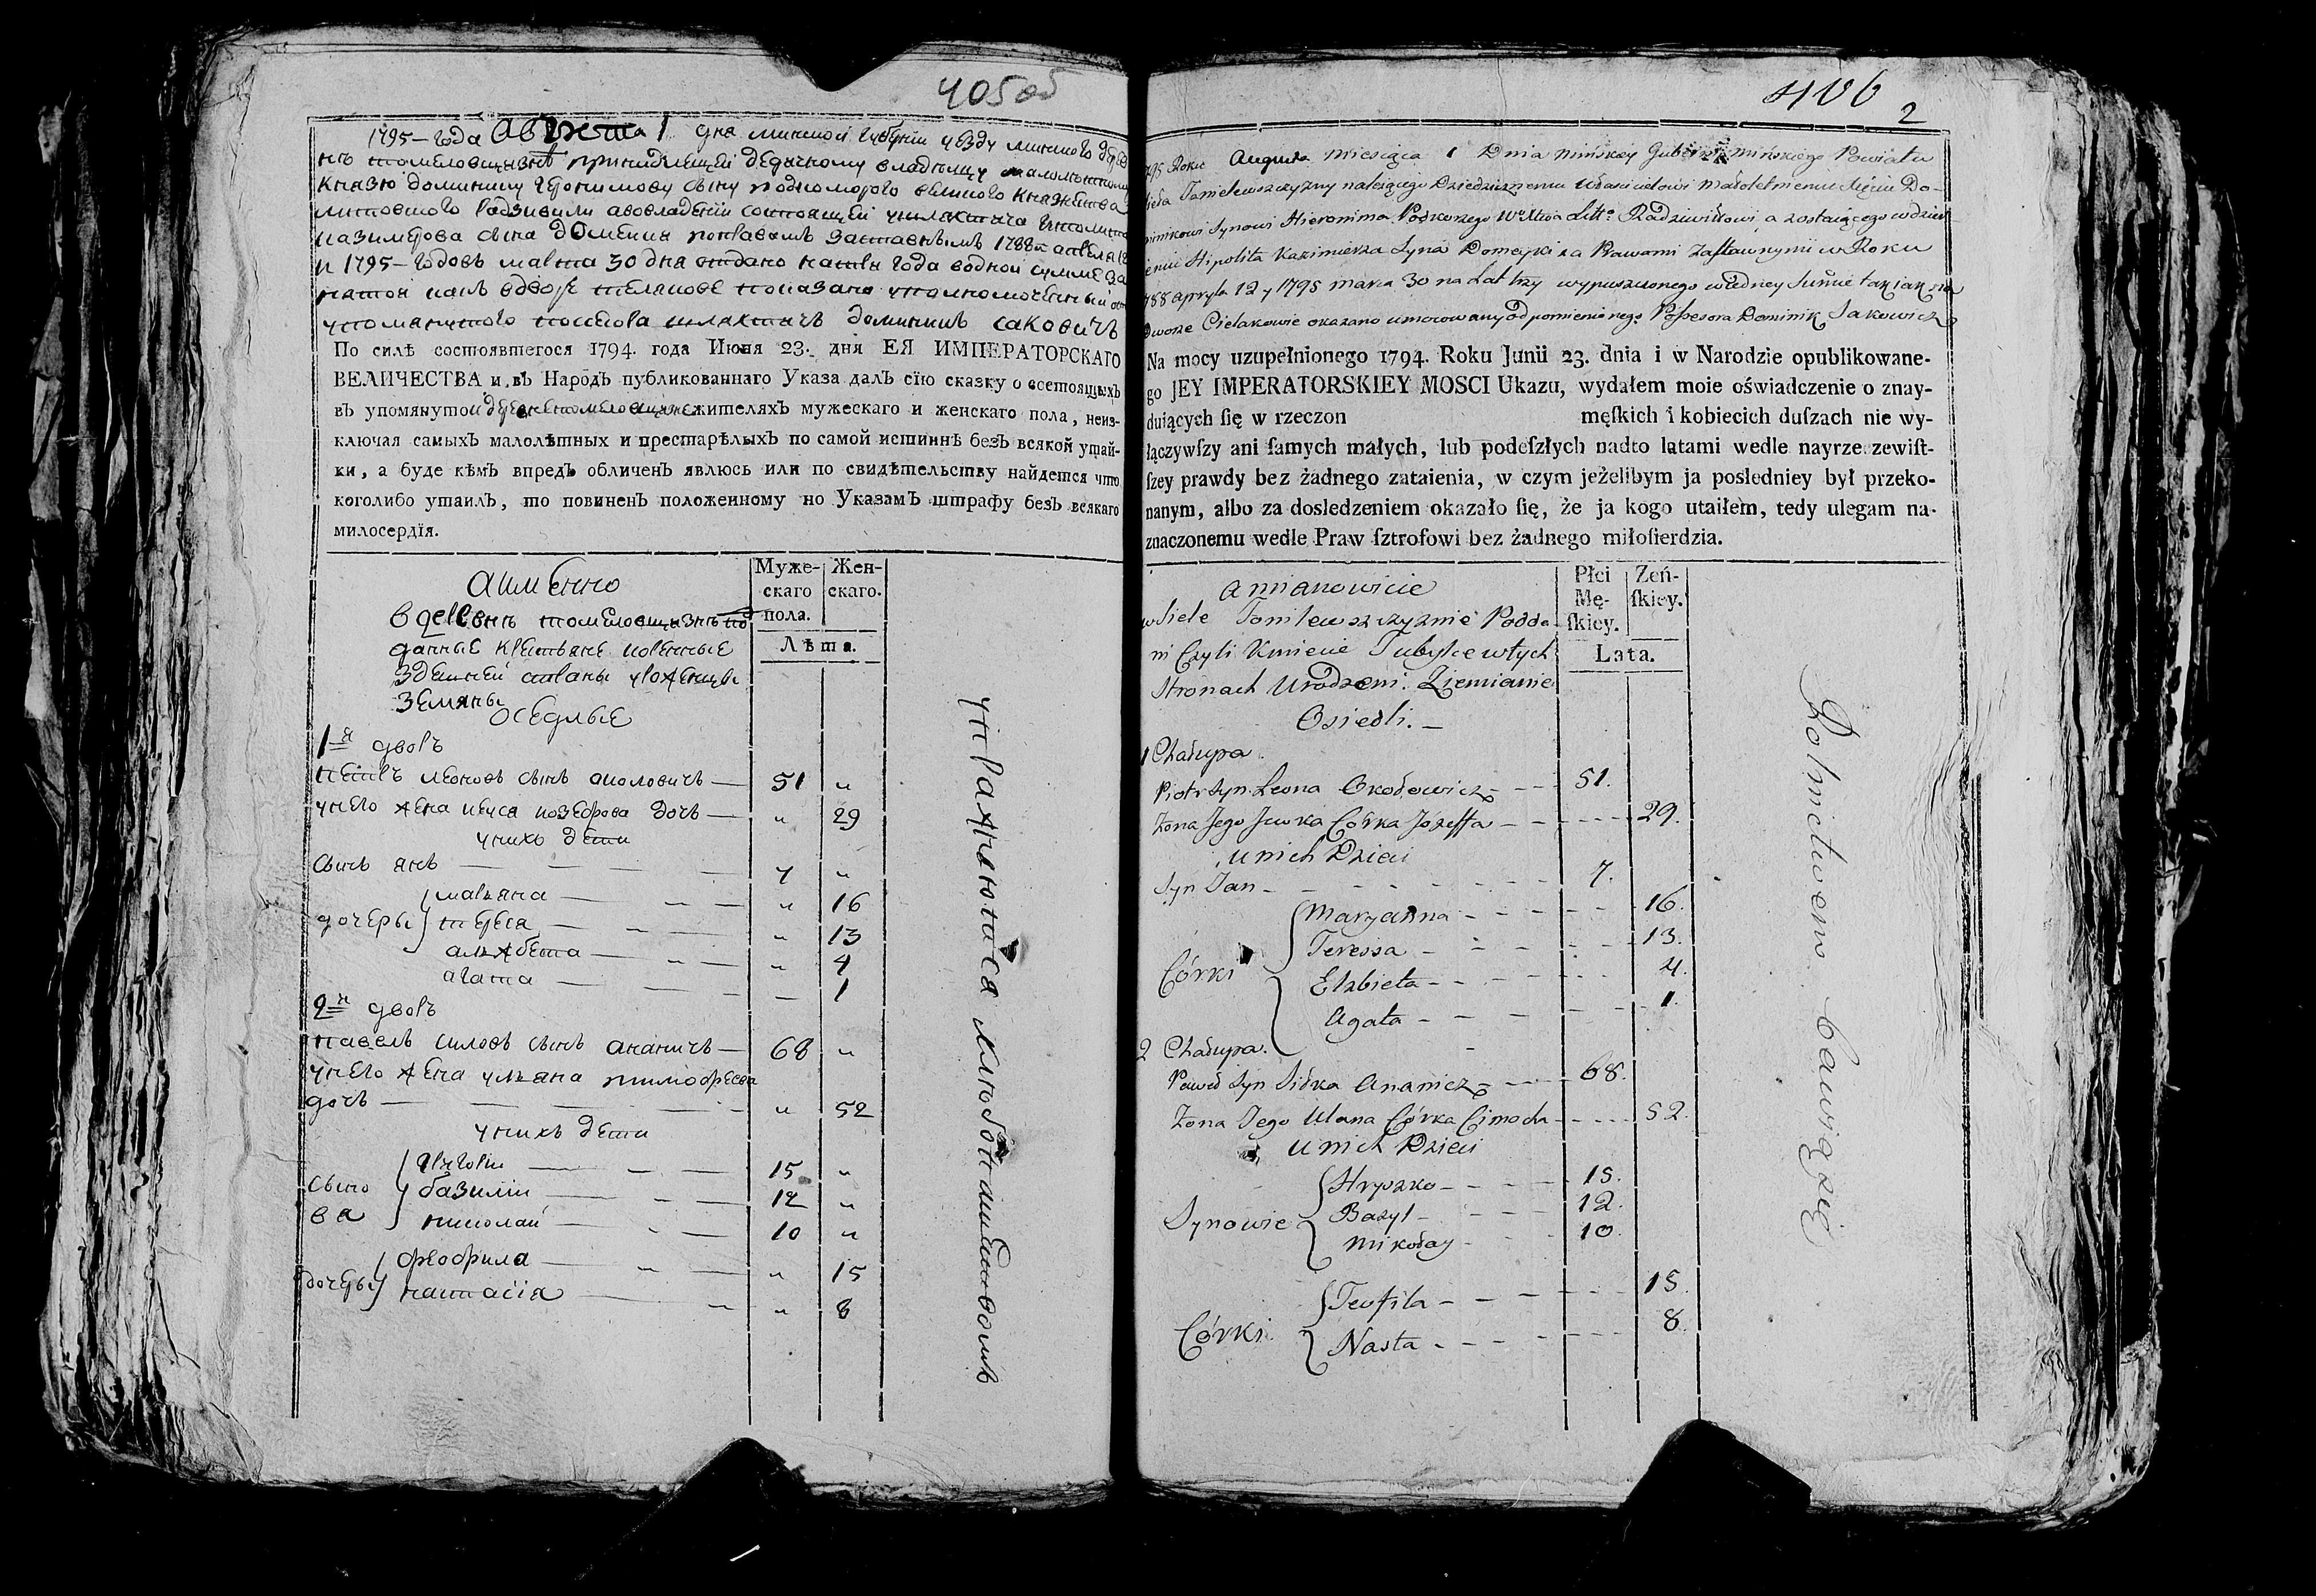 405об
1795-года Августа 1 дня минской губернии уезду минского дерев
не томиловщизне принадлежащей дедичному владельцу малолетному
князю доминику геронимову сыну подкоморого великого княжества
литовского радзивилу а во владении состоящей шляхтича
казимерова сына домейки по правамъ заставнымъ 1788 апреля 12
и 1795-годовъ марта 30 дня отдано на три года водной сумме за
уполномоченный
упомянутого посесора шляхтичъ доминикъ саковичъ
По силѣ состоявшегося 1794. года Июня 23. дня ЕЯ ИМПЕРАТОРСКАГО
ВЕЛИЧЕСТВА и въ Народъ публикованнаго Указа далъ сїю сказку о состоящихъ
въ упомянутой деревне томиловщизне жителяхъ мужескаго и женскаго пола, неиз-
ключая самыхъ малолѣтныхъ и престарѣлыхъ по самой истиннѣ безъ всякой утай-
ки, а буде кѣмъ впредь обличенъ явлюсь или по свидѣтельству найдется что
коголибо утаилъ, то повиненъ положенному по Указамъ штрафу безъ всякаго
милосердїя.
а имѣнно
Муже-
скаго
пола.
Жен-
скаго.
Лѣта.
в деревне томиловщизне под
данные крестьяне коренные
здешней страны уроженцы
земяны
оседлые
1-й дворъ
петръ леоновъ сынъ околовичъ — 51 "
у него жена евса иозефова дочь — " 29
у нихъ дети
сынъ янъ — 7 "
дочеры марьяна — " 16
тереса — " 13
альжбета — " 4
агата — 1
2-й дворъ
павелъ силовъ сынъ ананичъ — 68 "
у него жена ульяна тимофеева
дочь — " 52
у нихъ дети
сыно
ва григори — 15 "
базилии — 12 "
николай — 10 "
дочеры феофила — " 15
настасия — " 8
упражнаютса хлебопашествомъ
406
2
1795 Roku Augusta Miesiąca 1 Dnia Minskiey Gubernii Minskiego Powiatu
Sieła Tomilewszczyzny należącego Dziedzicznemu Właścicielowi Małoletniemu Xięciu Do-
minikowi Synowi Hieronima Podkomorzego W° Xtwa Litt° Radziwiłłowi a zostaiącego w dzier
żeniu Hipolita Kazimierza Syna Domeyki za Prawami Zastawnymi w Roku
1788 apryla 12 y 1795 marca 30 na Lat trzy wypuszczonego w iedney Summie tak iak na
Dworze Cielakowie okazano umocowany od pomienionego Possesora Dominik Sakowicz
Na mocy uzupełnionego 1794. Roku Junii 23. dnia i w Narodzie opublikowane-
go JEY IMPERATORSKIEY MOSCI Ukazu, wydałem moie oświadczenie o znay-
duiących ſię w rzeczon męſkich i kobiecich duſzach nie wy-
łączywſzy ani ſamych małych, lub podeſzłych nadto latami wedle nayrzeczewiſt-
ſzey prawdy bez żadnego zataienia, w czym jeżelibym ja posledniey był przeko-
nanym, albo za dosledzeniem okazało ſię, że ja kogo utaiłem, tedy ulegam na-
znaczonemu wedle Praw ſztrofowi bez żadnego miłoſierdzia.
a mianowicie
Płci
Mę-
ſkiey.
Żeń-
ſkiey.
Lata.
w Siele Tomilewszczyznie Podda
ni Czyli Kmiecie Tubylce w tych
Stronach Urodzeni. Ziemianie
Osiedli. —
1 Chałupa.
Piotr Syn Leona Okołowicz — 51.
Żona Jego Jewka Córka Józeffa — 29.
u nich Dzieci
Syn Jan — 7.
Córki Maryanna — 16.
Teressa — 13.
Elzbieta — 4.
Agata — 1.
2 Chałupa.
Paweł Syn Siłka Ananicz — 68.
Żona Jego Ulana Córka Cimocha — 52.
u nich Dzieci
Synowie Hryszko — 15.
Bazyl — 12.
Mikołay — 10.
Córki Teofila — 15.
Nasta — 8.
Rolnictwem bawią się